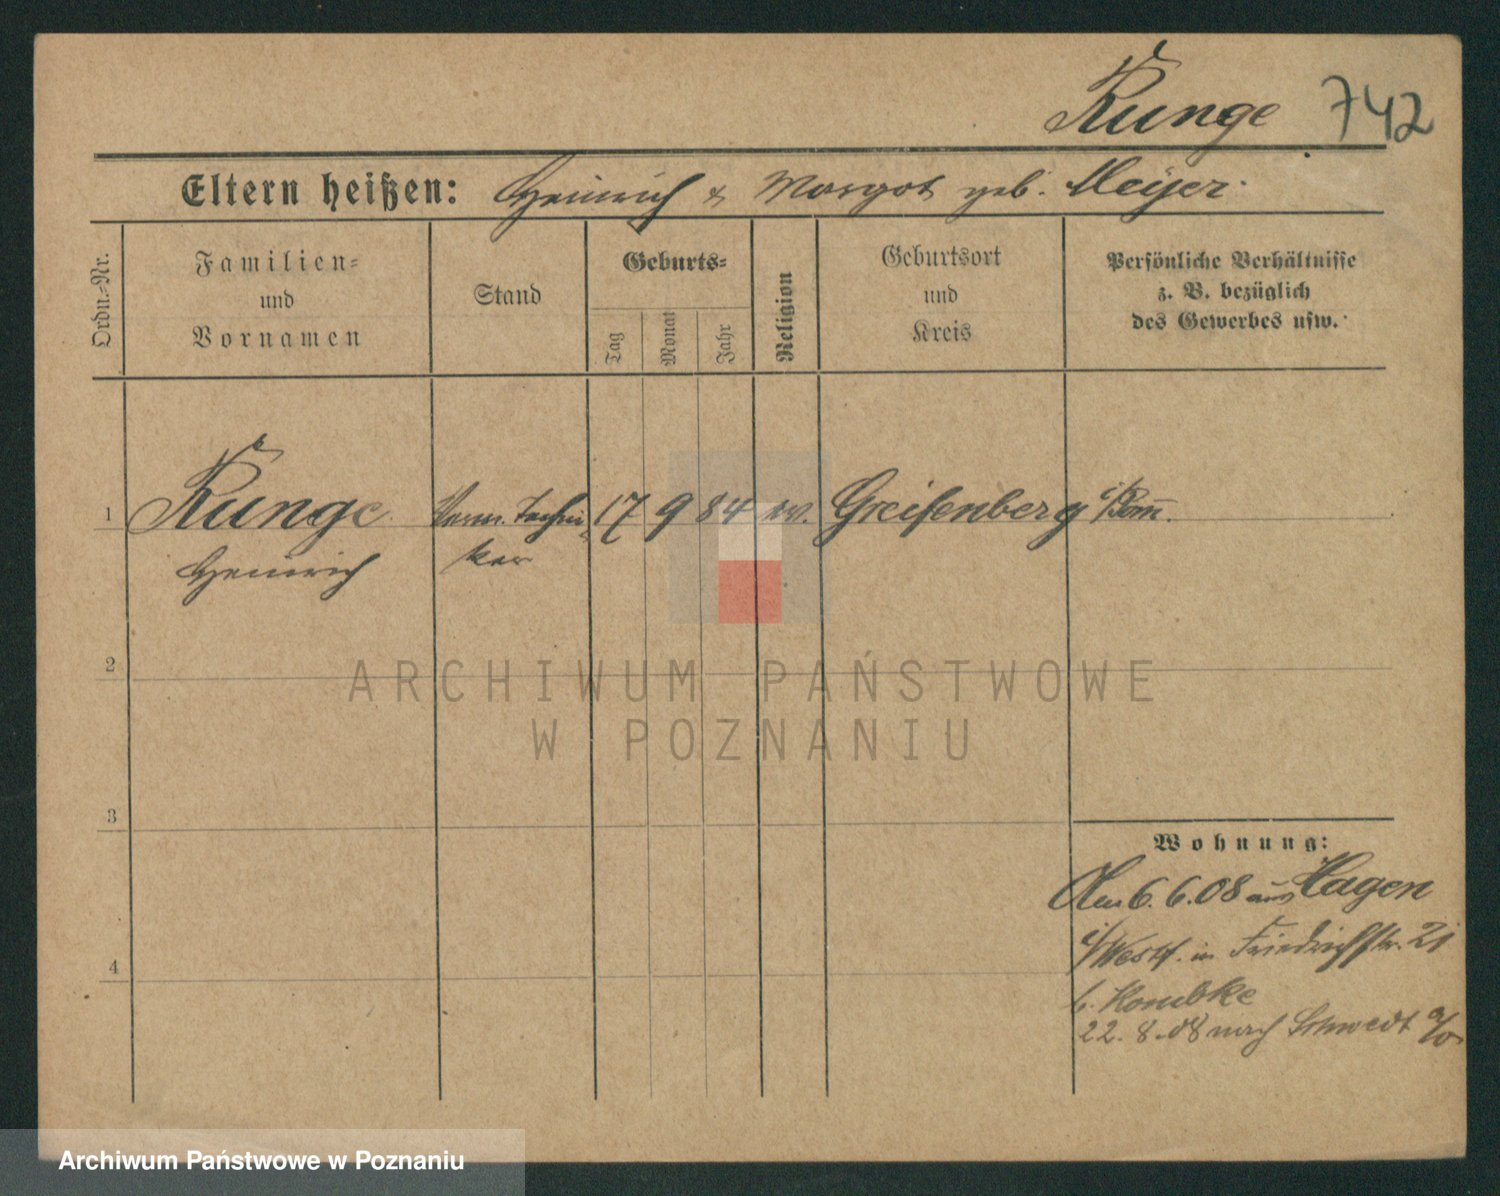 Runge 742
Eltern heißen: Heinrich & Margot geb. Meyer.
Ordn.-Nr.
Familien-
und
Vornamen
Stand
Geburts-
Tag
Monat
Jahr
Religion
Geburtsort
und
Kreis
Persönliche Verhältnisse
z. B. bezüglich
des Gewerbes usw.
1 Runge Verm. Techni- 17 9 84 ev. Greifenberg i/Pom.
Heinrich ker
2
ARCHIWUM PAŃSTWOWE
W POZNANIU
3
Wohnung:
Am 6. 6. 08 aus Hagen
i/Westf. in Friedrichstr. 21
b.
4
22. 8. 08 nach Schwedt a/O
Archiwum Państwowe w Poznaniu